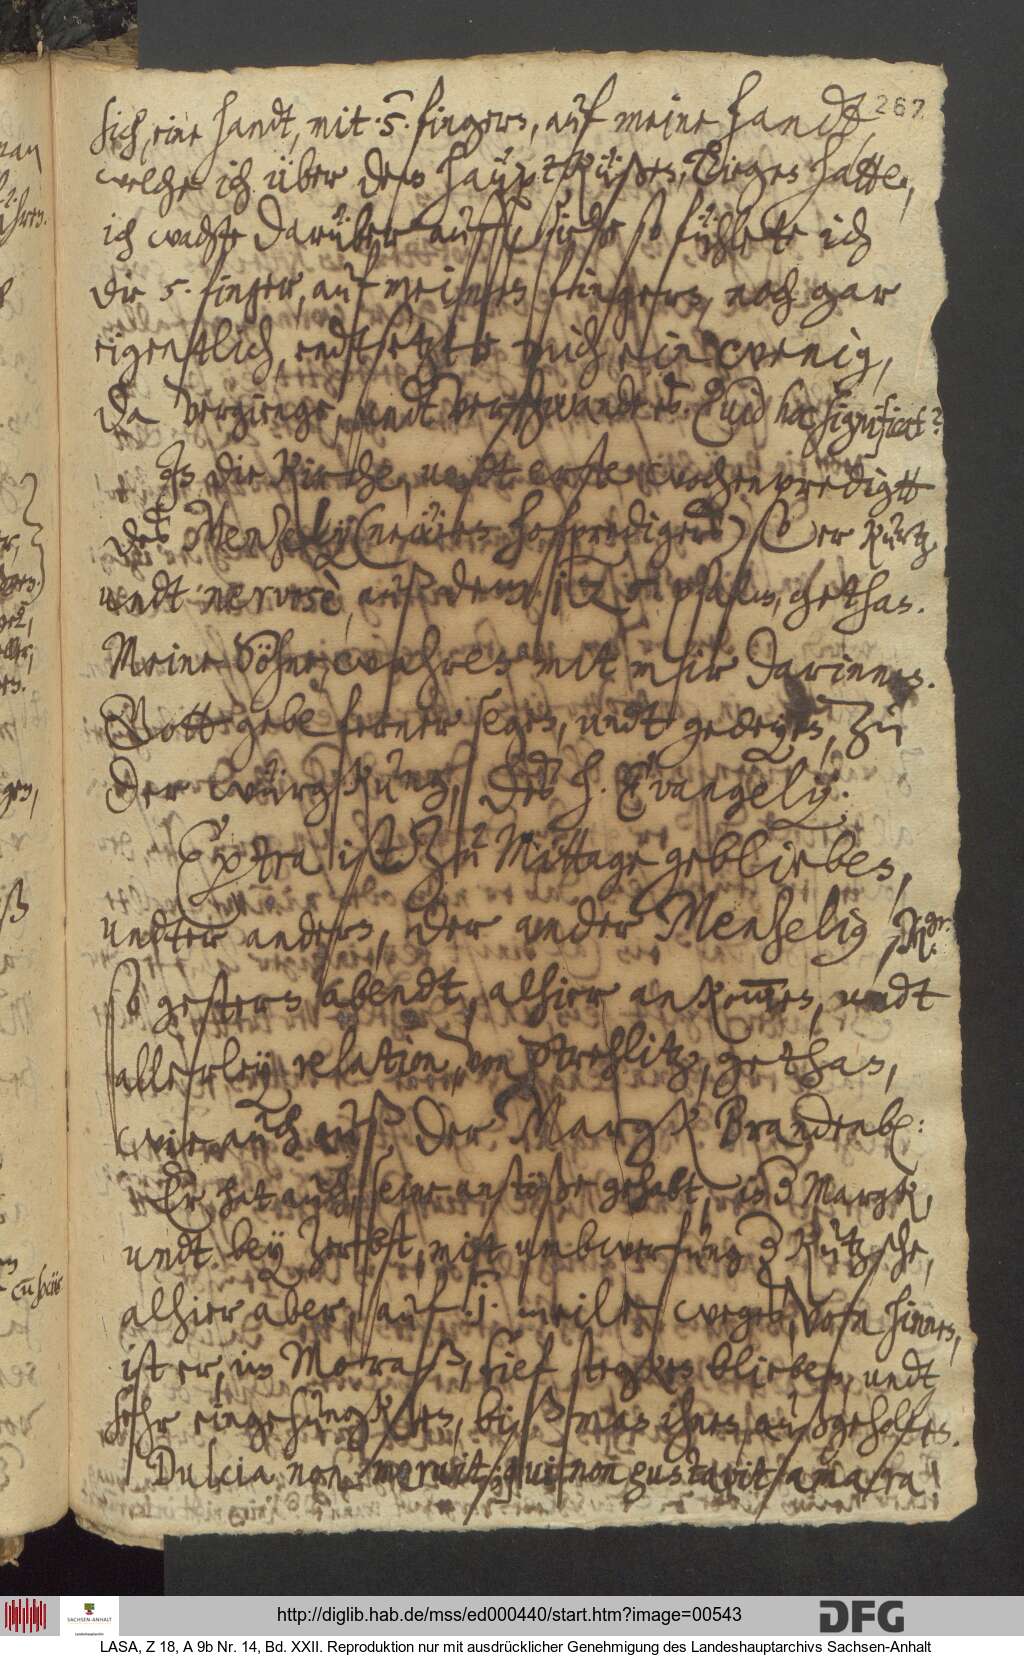 267
sich, eine handt, mit ·5· fingern, auf meine handt,
welche ich über dem haüpt Küßen, liegen hatte,
ich wachte darüber auff, undt so fühlete ich
die 5. finger, auf meinen fingern, noch gar
eigentlich, endtsetzte mich ein wenig,
da vergienge, undt verschwandt es. Quid hoc significat?
In die Kirche, undt erste wochenpredigtt
des Menselij (neẅen hofpredigers) So er kurtz
undt nervosè, auß dem psalm, gethan.
Meine Söhne, wahren mit mir darinnen.
Gott gebe ferner segen, undt gedeyen, zu
der des h. Evangelij.
Extra ist zu Mittage geblieben,
undter andern, der ander Menselius
so gestern abendt, alhier ankom̄en, undt
allerley relation, von Strehlitz, gethan,
wie auch auß der Margk Brandenb:
Er hat auch seine anstöße gehabt, in der Margk,
undt bey Zerbst, mit umbwerfung der Kutzsche,
alhier aber, auf ·1· meile weges, von hinnen,
ist er, im Moraß, tief stegken blieben, undt
sehr eingesungken, biß man ihnen außgeholfen.
Dulcia non meruit; qui non gustavit amara!
http://diglib.hab.de/mss/ed000440/start.htm?image=00543
DFG
SACHSEN-ANHALT
LASA, Z 18, A 9b Nr. 14, Bd. XXII. Reproduktion nur mit ausdrücklicher Genehmigung des Landeshauptarchivs Sachsen-Anhalt